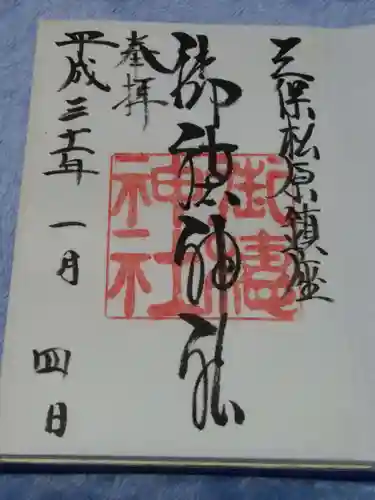 三保松原鎮座
御穂神社
御穂
神社
奉拝
平成三十一年 一月 四日